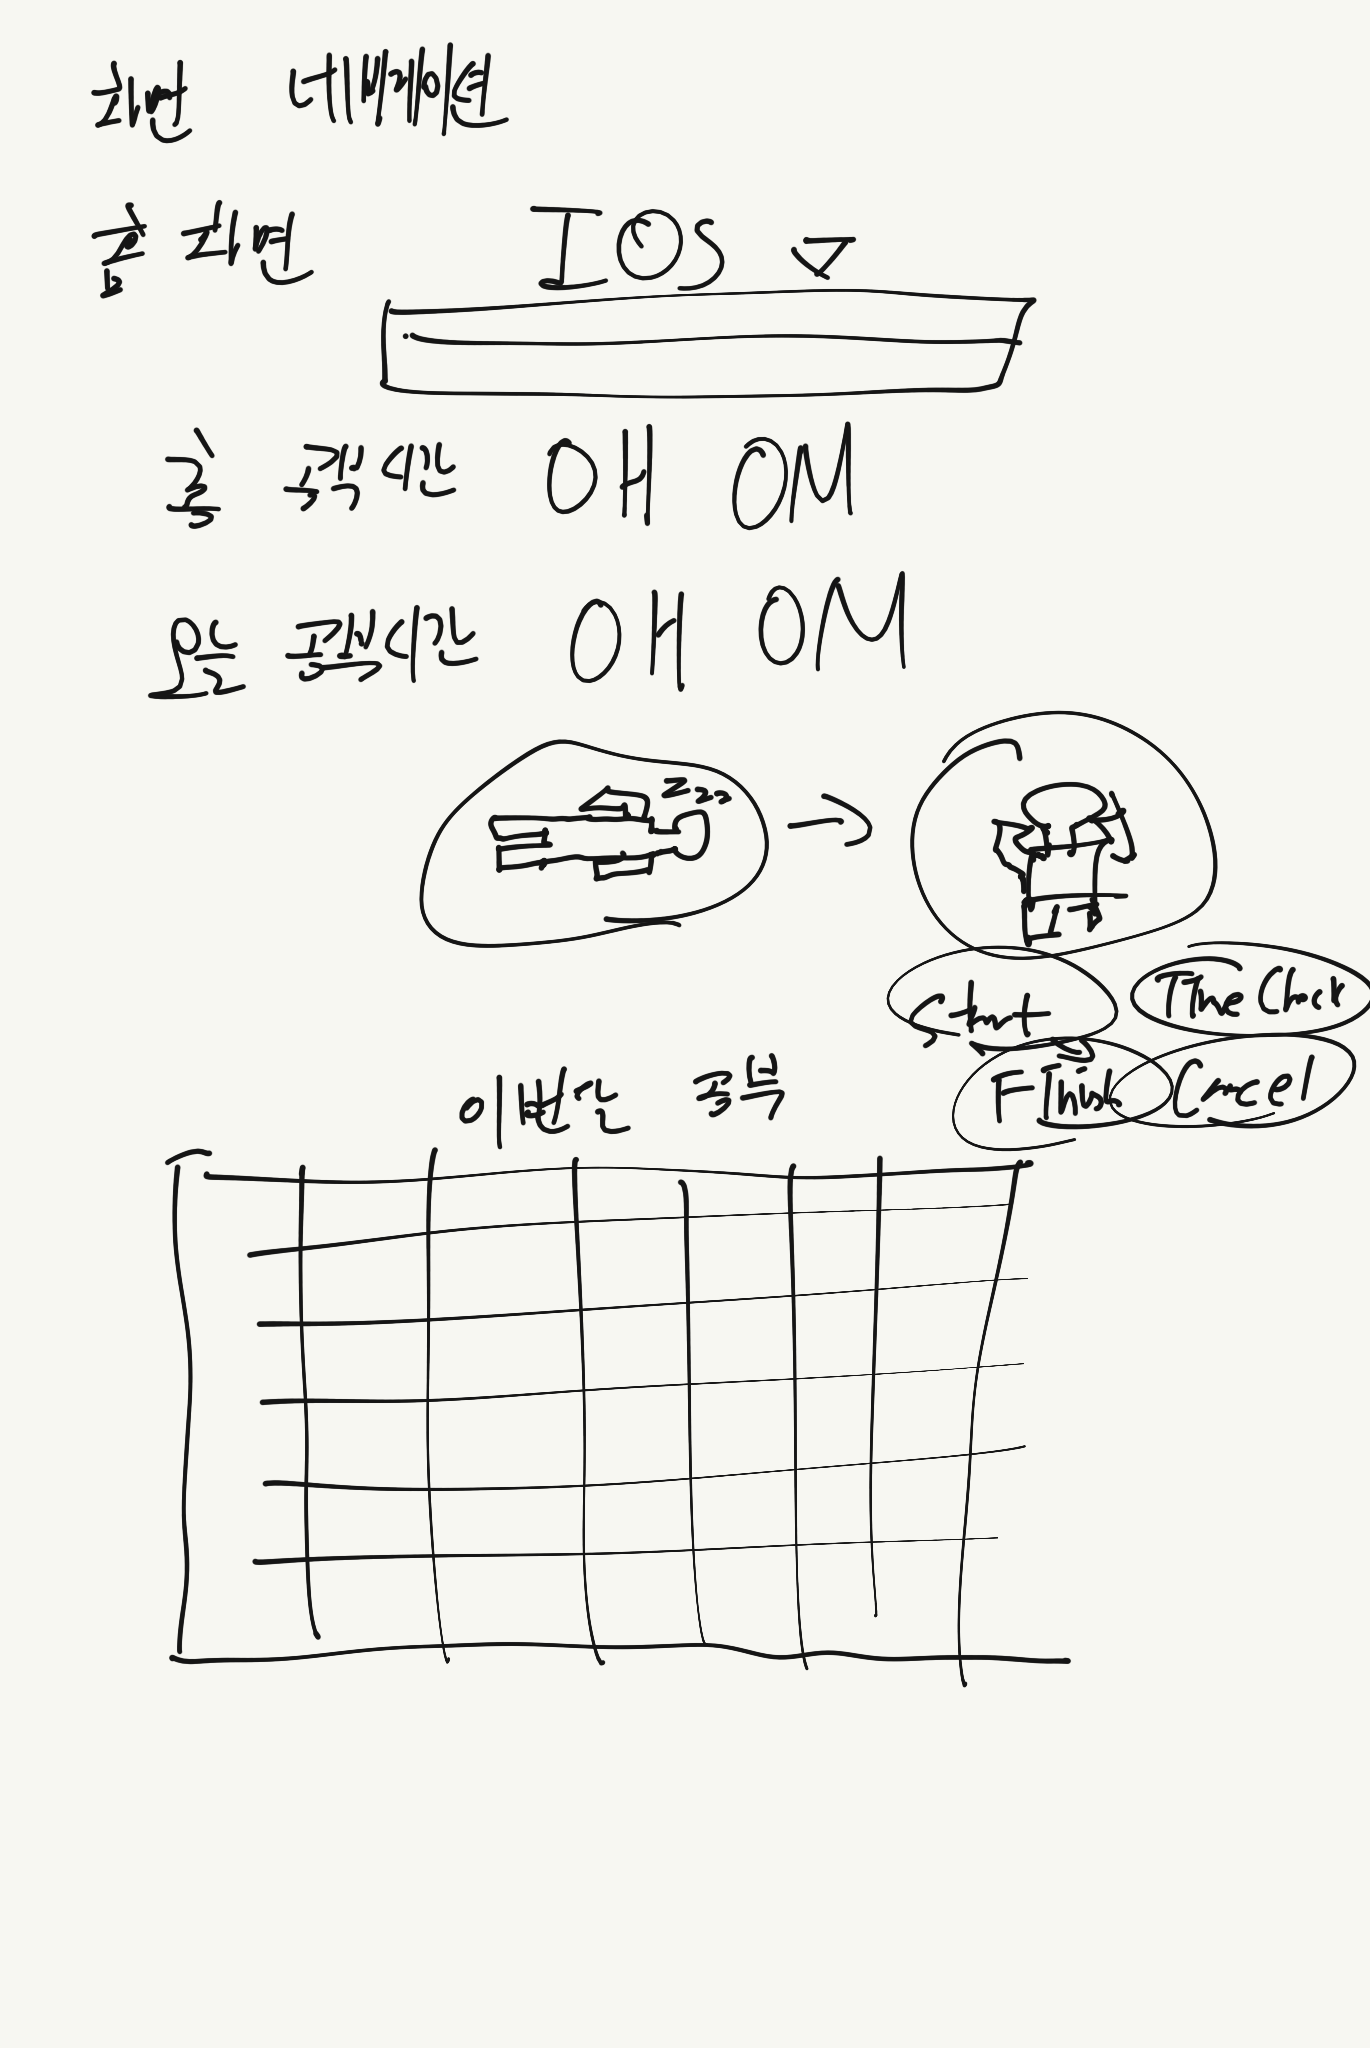 화면 네비게이션
홈 화면
IOS
총 공부시간 0H 0M
오늘 공부시간 0H 0M
Zzz
Start
Time Check
Finish
Cancel
이번달 공부